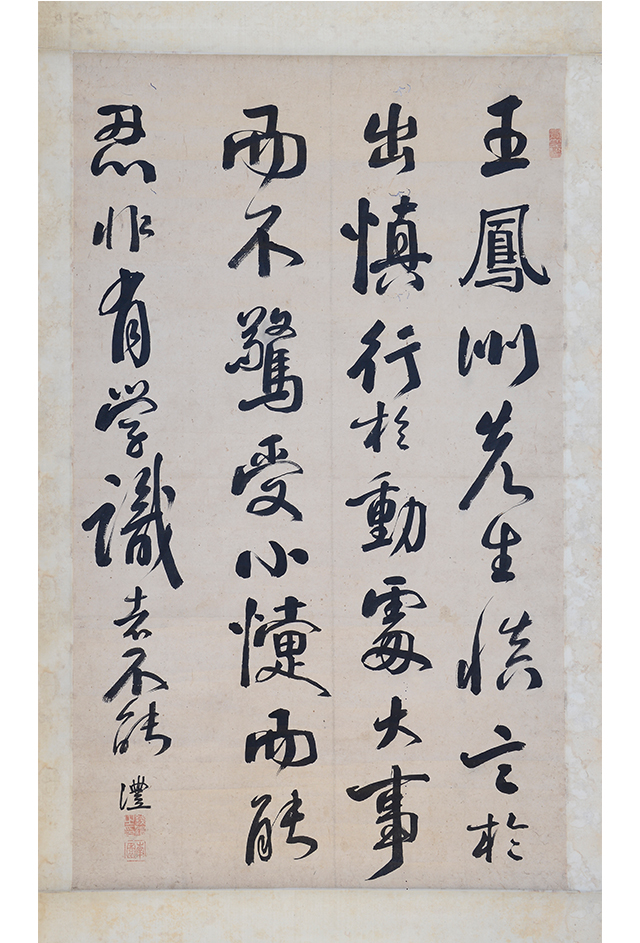 王鳳洲先生慎言於
出慎行於動處大事
而不驚受小而能
忍非有学識者不能
澧